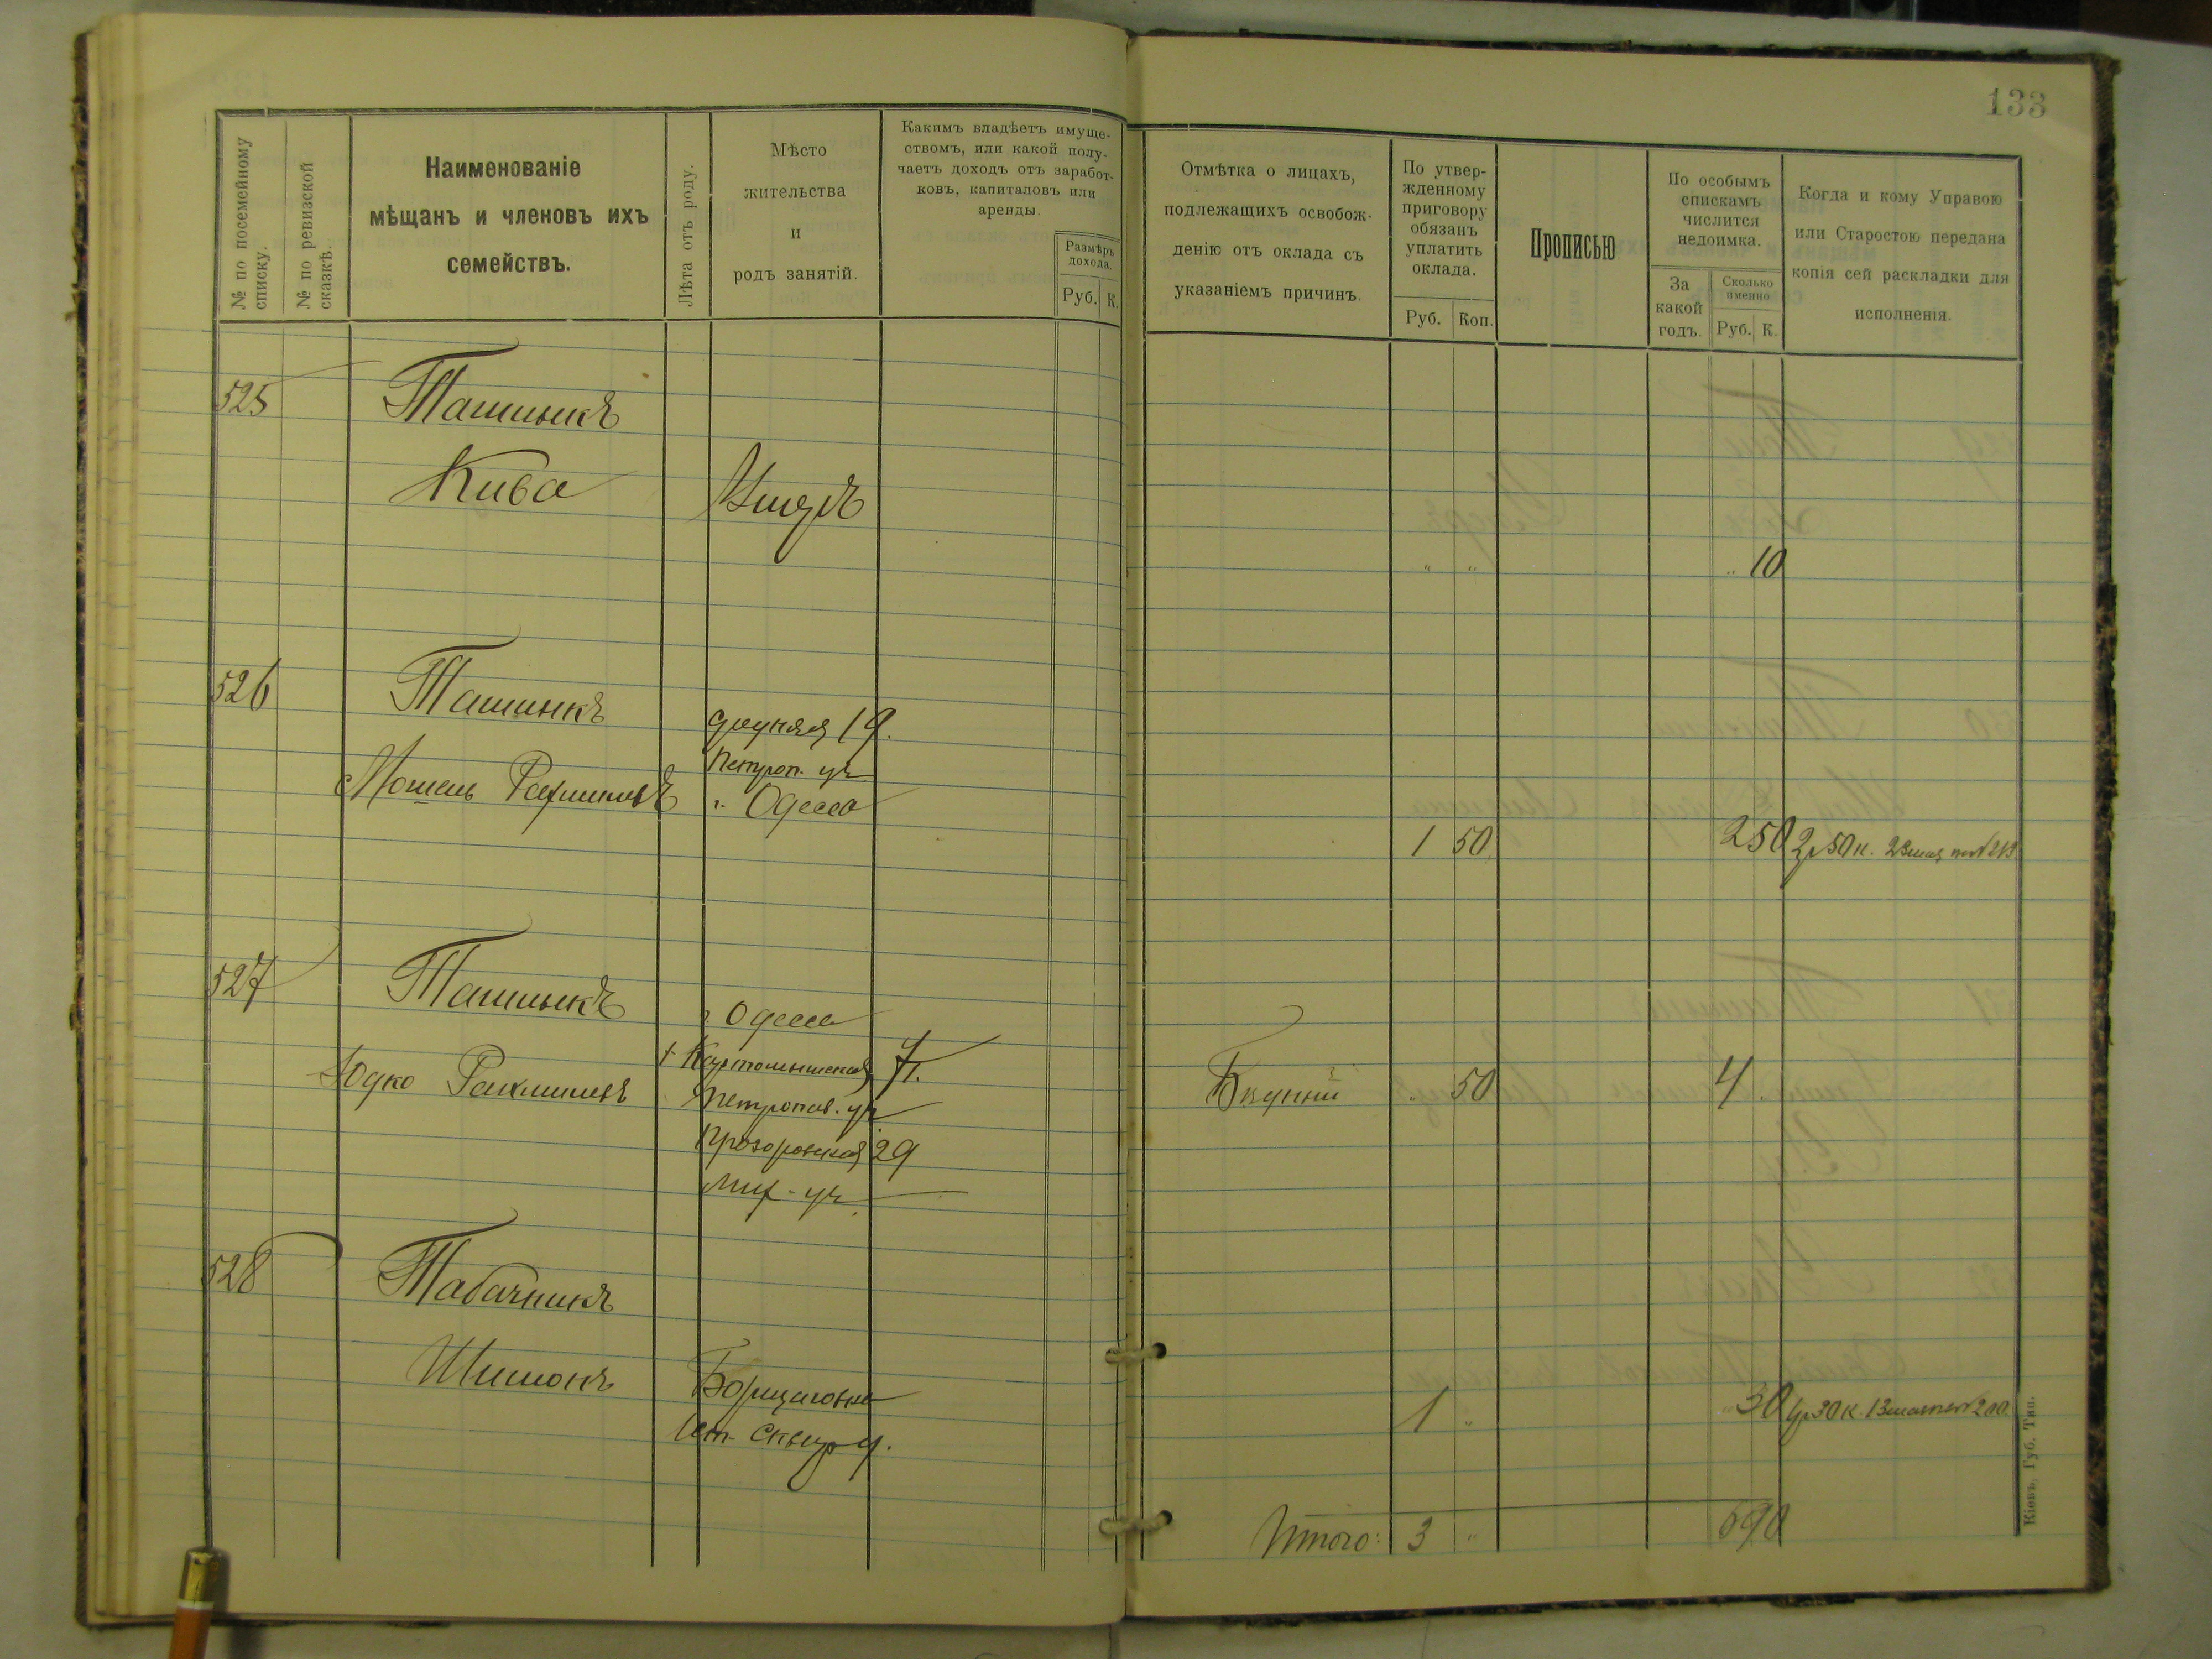 133
№ по посемейному списку.
№ по ревизской сказкѣ.
Наименованіе
мѣщанъ и членовъ ихъ
семействъ.
Лѣта отъ роду.
Мѣсто
жительства
и
родъ занятій.
Какимъ владѣетъ имуще-
ствомъ, или какой полу-
чаетъ доходъ отъ заработ-
ковъ, капиталовъ или
аренды.
Размѣръ
дохода.
Руб. К.
Отмѣтка о лицахъ,
подлежащихъ освобож-
денію отъ оклада съ
указаніемъ причинъ.
По утвер-
жденному
приговору
обязанъ
уплатить
оклада.
Руб. Коп.
Прописью
По особымъ
спискамъ
числится
недоимка.
За
какой
годъ.
Сколько
именно
Руб. К.
Когда и кому Управою
или Старостою передана
копія сей раскладки для
исполненія.
525 Ташлыкъ
Кива
" " " 10
526 Ташлыкъ
Средняя 19.
Петроп. уч.
Мошель Рахмилевъ г. Одесса
1 50 2 50 2р 50 к.
527 Ташлыкъ
г. Одесса
7
Юдко Рахмилевъ
Бѣдный " 50 4
Петропав. уч
Прозоровская 29
Мих. уч.
528 Табачникъ
Шимонъ Борщаговка
1 " " 30
Сквир у.
Итого: 3 " 6 90
Кіевъ, Губ. Тип.